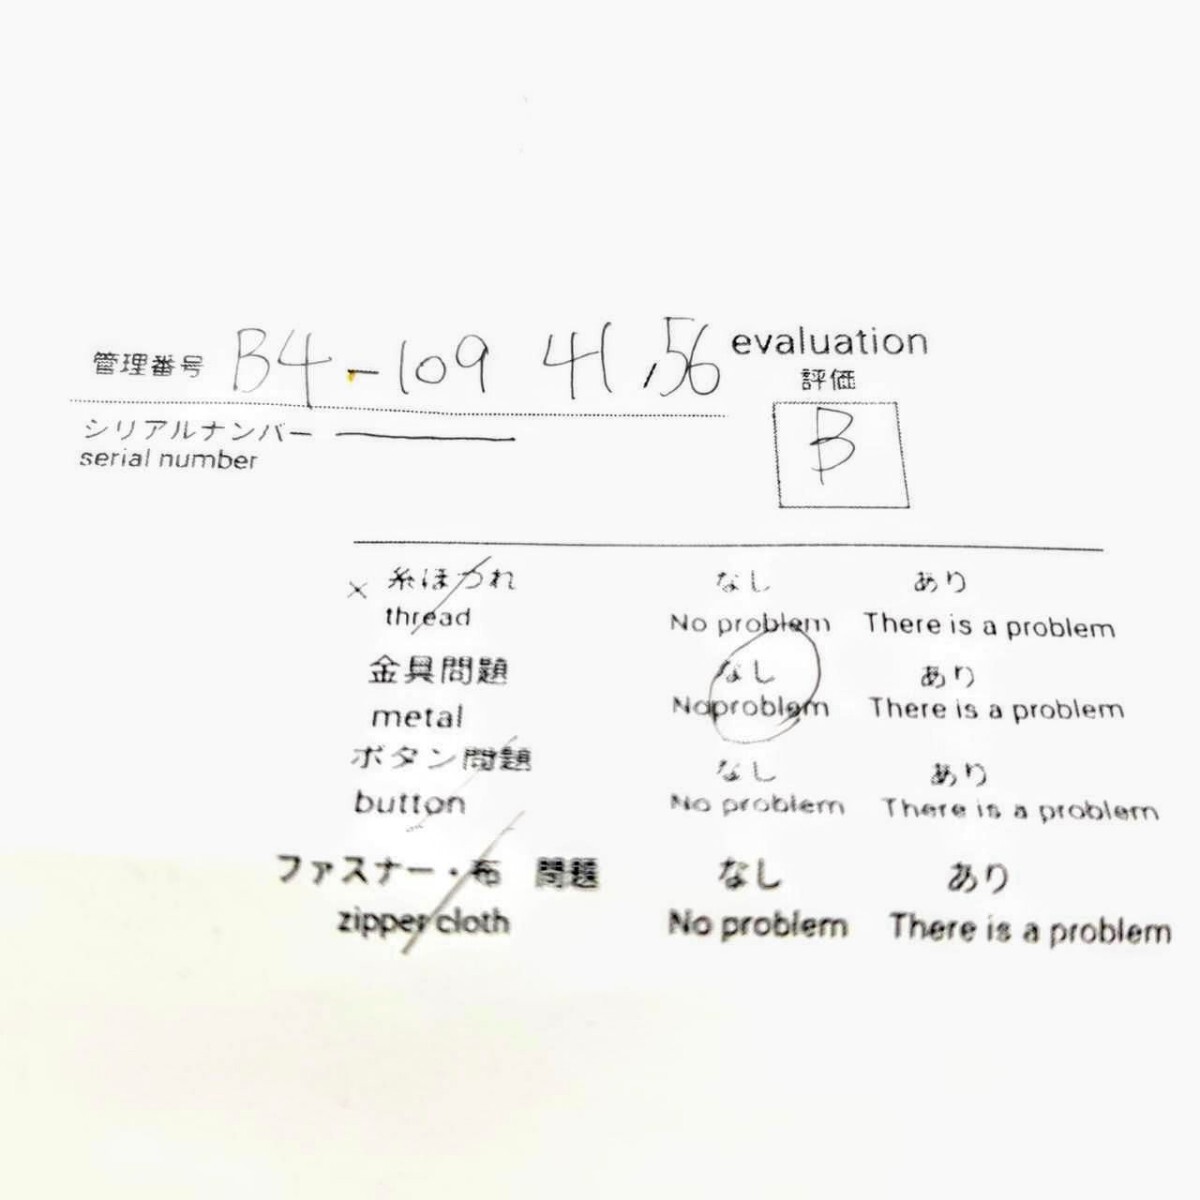 管理番号 B4-109 41,56 evaluation
評価
シリアルナンバー ―
serial number
B
× 糸ほつれ なし あり
thread No problem There is a problem
金具問題 なし あり
metal No problem There is a problem
ボタン問題 なし あり
button No problem There is a problem
ファスナー・布 問題 なし あり
zipper cloth No problem There is a problem